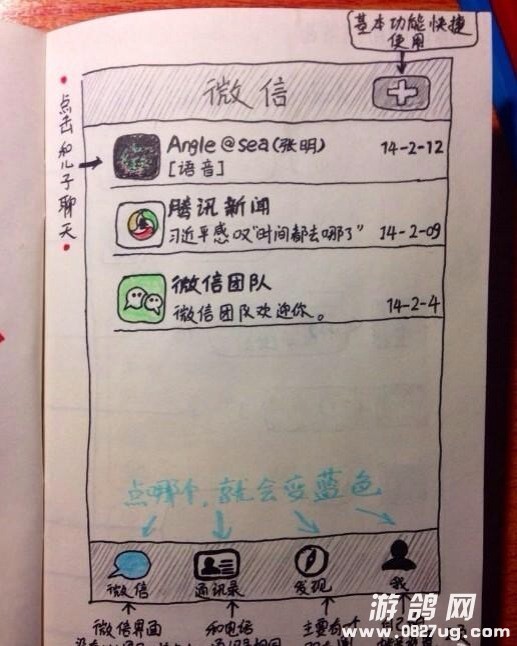 基本功能快捷
使用
微信
点击和儿子聊天
Angle@sea(张明)
14-2-12
[语音]
腾讯新闻
习近平感叹"时间都去哪了"
14-2-09
微信团队
微信团队欢迎你。
14-2-4
点哪个,就会变蓝色
微信
通讯录
发现
我
微信界面
和电话
主要有个
游鸽网
www.0827ug.com